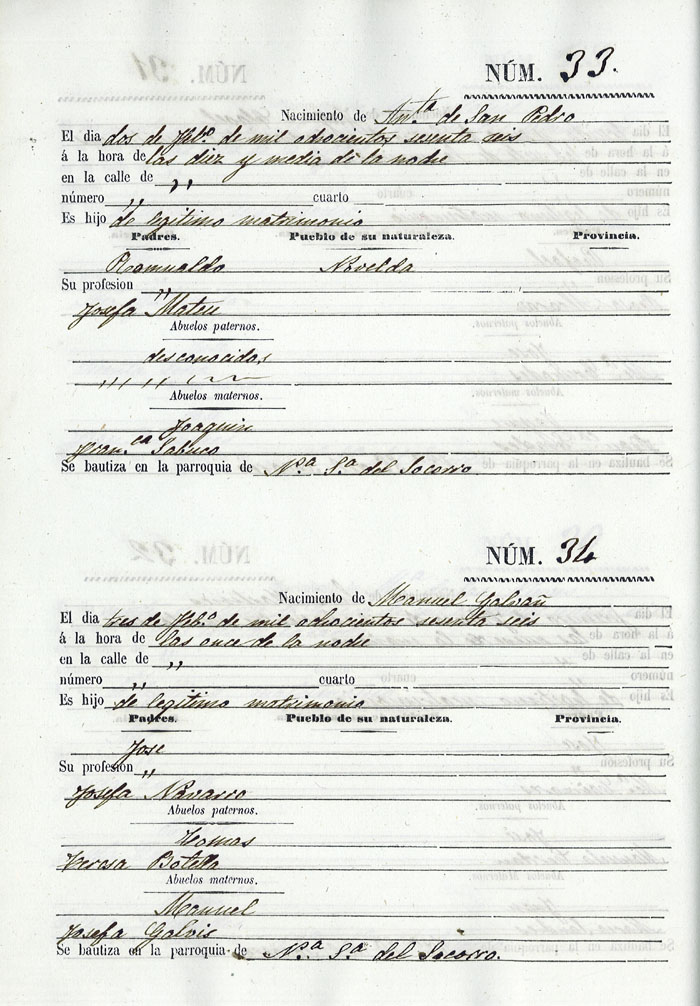 NÚM. 33.
Nacimiento de Anta de San Pedro
El dia dos de Fbo. de mil ochocientos sesenta seis
á la hora de las diez y media de la noche
en la calle de ,,
número ,, cuarto
Es hijo de legitimo matrimonio
Padres. Pueblo de su naturaleza. Provincia.
Romualdo Novelda
Su profesion ,,
Josefa Mateu
Abuelos paternos.
desconocidos
,, ,, ,,
Abuelos maternos.
Joaquin
Franca
Se bautiza en la parroquia de Na Sa del Socorro
NÚM. 34
Nacimiento de Manuel Galvañ
El dia tres de Fbo. de mil ochocientos sesenta seis
á la hora de las once de la noche
en la calle de ,,
número ,, cuarto
Es hijo de legitimo matrimonio
Padres. Pueblo de su naturaleza. Provincia.
Jose
Su profesion ,,
Josefa Navarro
Abuelos paternos.
Tomas
Teresa Botella
Abuelos maternos.
Manuel
Josefa Galvis
Se bautiza en la parroquia de Na. Sa del Socorro.